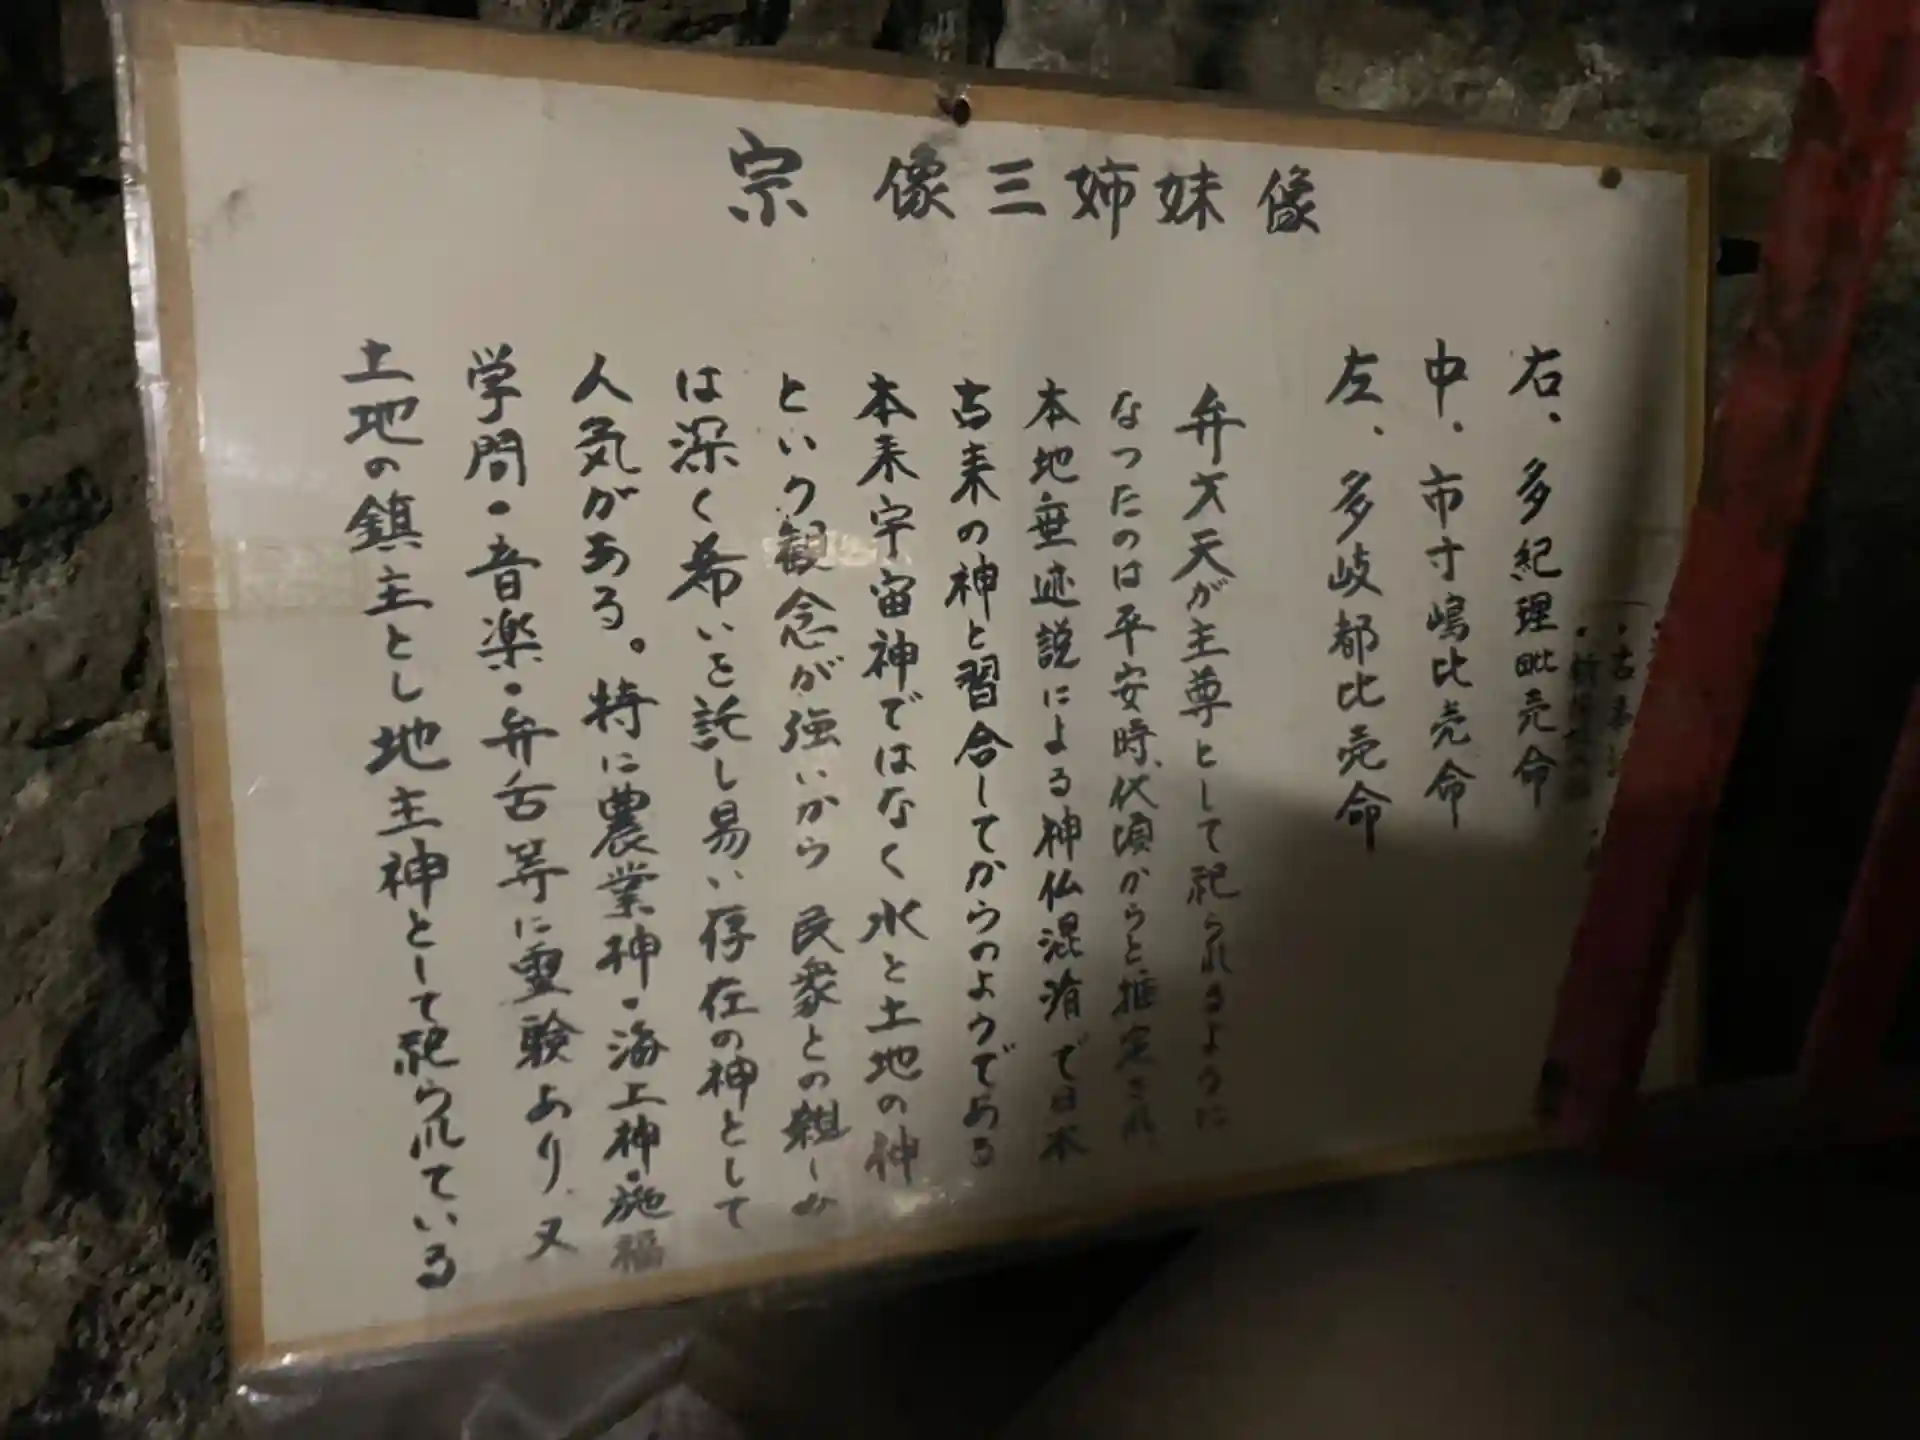 宗像三姉妹像
右、多紀理毗売命
中、市寸嶋比売命
左、多岐都比売命
弁才天が主尊として祀られるように
なったのは平安時代頃からと推定され
本地垂迹説による神仏混淆で日本
古来の神と習合してからのようである
本来宇宙神ではなく水と土地の神
という観念が強いから民衆との組しみ
は深く希いを託し易い存在の神として
人気がある。特に農業神・海上神・施福
学問・音楽・弁舌等に霊験あり、又
土地の鎮主とし地主神として祀られている